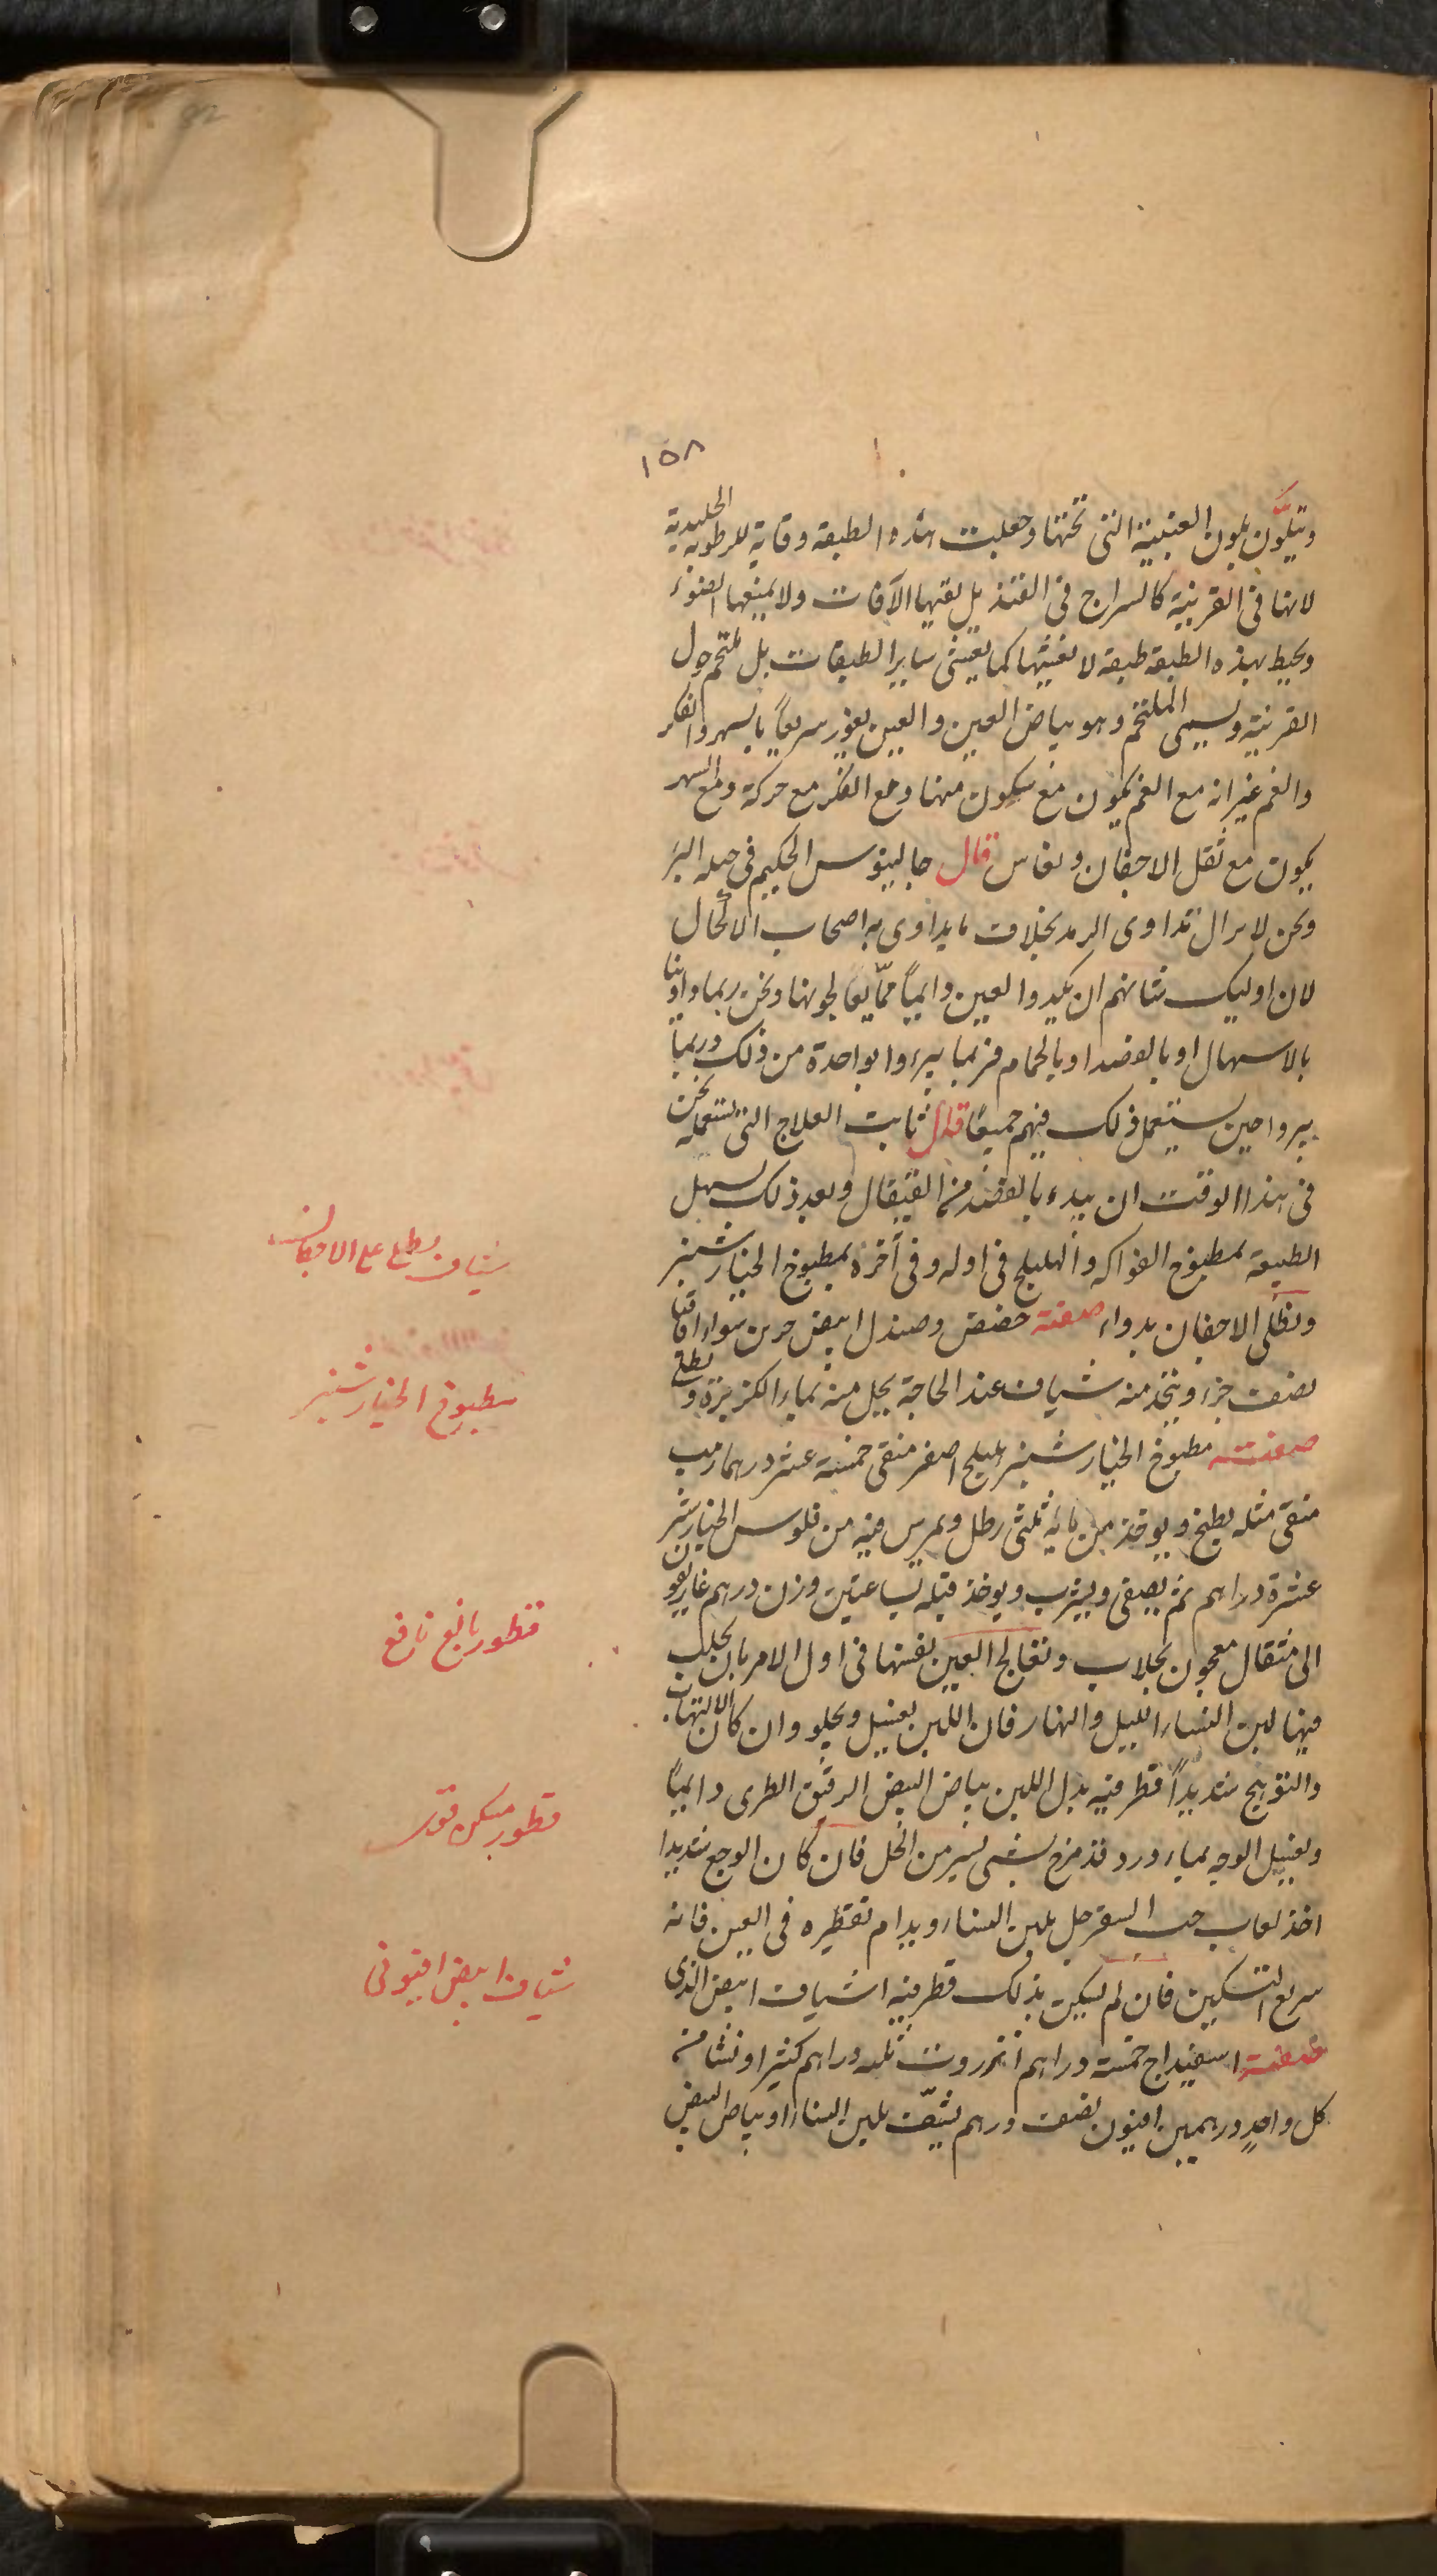 ١٥٨
ويتلَوَّن بلون العنبية التى تحتها وجعلت هذه الطبقة وقاية للرطوبة الجليدية
لانها فى القرنية كالسراج فى القنديل يقيها الآفات ولا يمنعها الضوء
ويحيط بهذه الطبقة طبقة لا تغشيها كما تغشى ساير الطبقات بل تلتحم حول
القرنية ويسمى الملتحم وهو بياض العين والعين تغور سريعاً بالسهر والفكر
والغم غير انه مع الغم يكون مع سكون منها ومع الفكر مع حركة ومع السهر
يكون مع ثقل الاجفان ونعاس قال جالينوس الحكيم فى حيلة البرء
ونحن لا نزال نداوى الرمد بخلاف ما يداوى به اصحاب الاكحال
لان اوليك شانهم ان يكدوا العين دايماً ممّا يعالجونها ونحن ربما داوينا
بالاسهال او بالفصد او بالحمام فربما يبرءوا بواحدة من ذلك وربما
يبروا حين يستعمل ذلك فيهم جميعًا قال ثابت العلاج التى نستعمله نحن
فى هذا الوقت ان يبدء بالفصد من القيفال وبعد ذلك يسهل
الطبيعة بمطبوخ الفواكه والهليلج فى اوله وفى آخره بمطبوخ الخيارشنبر
وتطلى الاجفان بدواء صفته حضض وصندل ابيض جزءين سواء اقاقيا
نصف جزء ويتخذ منه شياف عند الحاجة يحل منه بماء الكزبرة ويطلى
صفته مطبوخ الخيارشنبر هليلج اصفر منقى خمسة عشر درهما زبيب
منقى مثله يطبخ ويوخذ من مائه ثلثى رطل ويمرس فيه من فلوس الخيارشنبر
عشرة دراهم ثم يصفى ويشرب ويوخذ قبله بساعتين وزن درهم غاريقون
الى مثقال معجون بجلاب وتعالج العين نفسها فى اول الامر بان يحلب
فيها لبن النساء الليل والنهار فان اللبن يغسل ويجلو وان كان الالتهاب
والتوهج شديداً قطر فيه بدل اللبن بياض البيض الرقيق الطرى دايماً
ويغسل الوجه بماء ورد قد مزج بشى يسير من الخل فان كان الوجع شديدا
اخذ لعاب حب السفرجل بلبن النساء ويدام تقطيره فى العين فانه
سريع التسكين فان لم يسكن بذلك قطر فيه اشياف ابيض الذى
صفته اسفيداج خمسة دراهم انزروت ثلثه دراهم كثيرا ونشا من
كل واحدٍ درهمين افيون نصف درهم يشيّف بلبن النساء او بياض البيض
شياف يطلى على الاجفان
مطبوخ الخيارشنبر
قطور بالغ نافع
قطور مسكن قوى
شياف ابيض افيونى